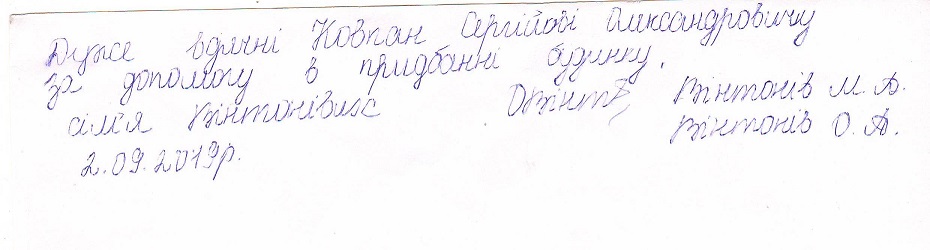 Дуже вдячні Ковпан Сергійові Олександровичу
за допомогу в придбанні будинку.
сім'я Вінтонівих Вінтонів М. А.
Вінтонів О. А.
2.09.2019р.